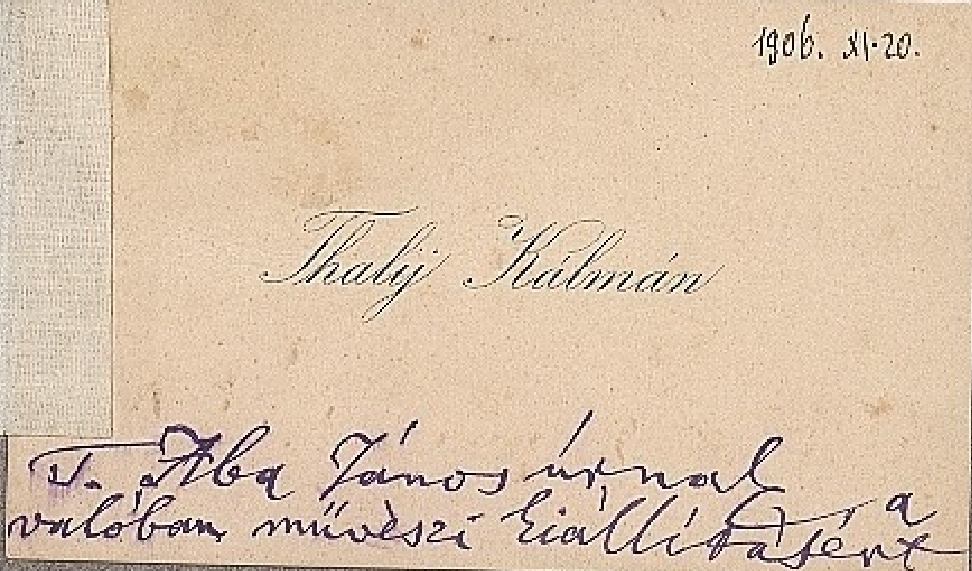 1906. XI-20.
Thalÿ Kálmán
T. Aba János úrnak
a
valóban művészi kiállításért